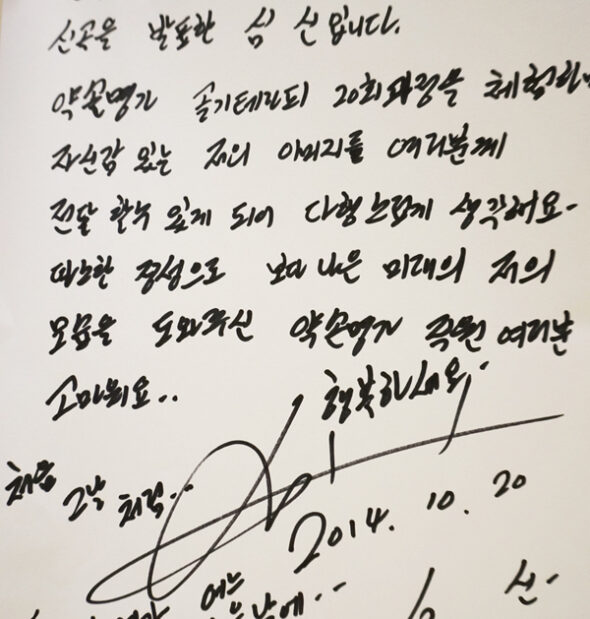 신곡을 발표한 심 신입니다.
약손명가 골기테라피 20회과정을 체험하며
자신감 있는 저의 이미지를 여러분께
전달 할수 있게 되어 다행스럽게 생각해요-
따스한 정성으로 보다 나은 미래의 저의
모습을 도와주신 약손명가 직원 여러분
고마워요..
행복하세요.
처음 그날 처럼..
2014. 10. 20
어느
날에..
신-